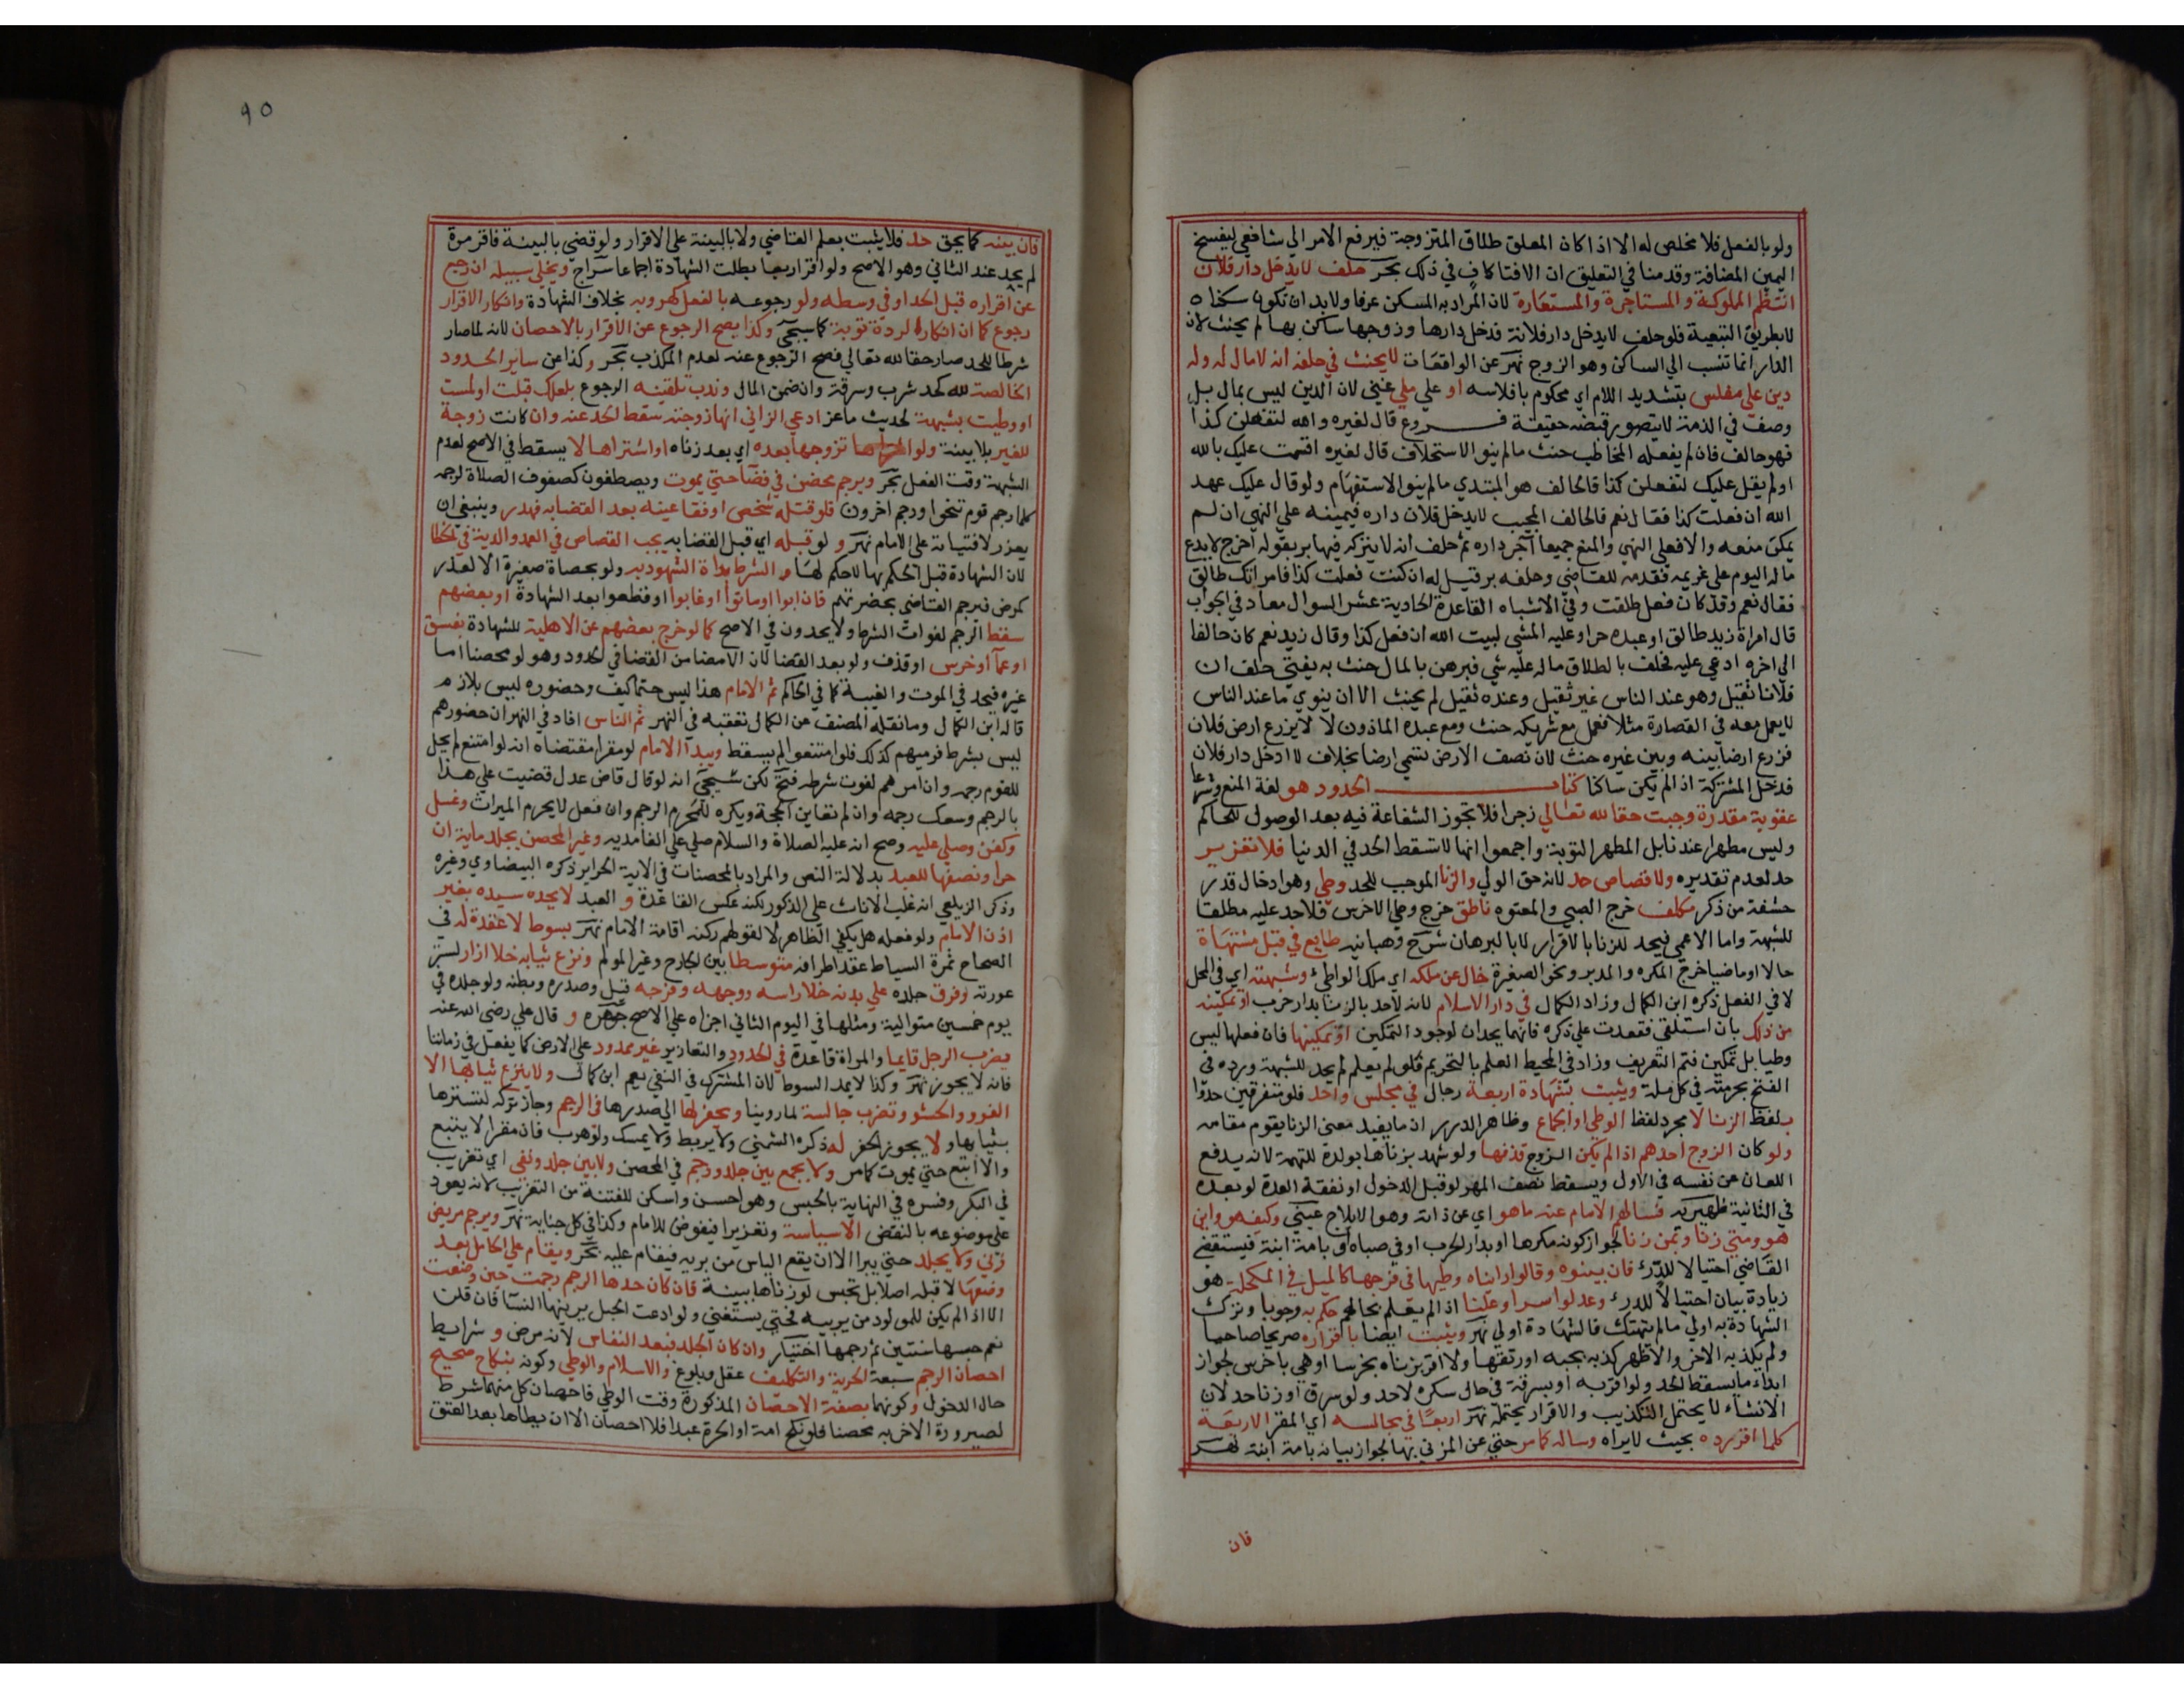 ولو بالفعل فلا مخلص له الا اذا كان المعلق طلاق المتزوجة فيرفع الامر الي شافعي ليفسخ
اليمين المضافة وقدمنا في التعليق ان الافتا كاف في ذلك بحر حلف لا يدخل دار فلان
انتظم المملوكة و المستاجرة والمستعارة لان المراد به المسكن عرفا ولابد ان تكون سكناه
لا بطريق التبعية فلو حلف لا يدخل دار فلانة فدخل دارها وزوجها ساكن بها لم يحنث لان
الدار انما تنسب الي الساكن وهو الزوج نهر عن الواقعات لا يحنث في حلفه انه لا مال له وله
دين على مفلس بتشديد اللام اي محكوم بافلاسه او علي ملي غني لان الدين ليس بمال بل
وصف في الذمة لا يتصور قبضه حقيقة فروع قال لغيره والله لتفعلن كذا
فهو حالف فان لم يفعله المخاطب حنث مالم ينو الاستحلاف قال لغيره اقسمت عليك بالله
او لم يقل عليك لتفعلن كذا فالحالف هو المبتدي مالم ينو الاستفهام ولو قال عليك عهد
الله ان فعلت كذا فقال نعم فالحالف المجيب لا يدخل فلان داره فيمينه علي النهي ان لم
يمكن منعه والا فعلي النهي والمنع جميعا آجر داره ثم حلف انه لا يتركه فيها بر بقوله اخرج لا يدع
ماله اليوم علي غريمه فقدمه للقاضي وحلفه بر قيل له ان كنت فعلت كذا فامراتك طالق
فقال نعم وقد كان فعل طلقت وفي الاشباه القاعدة الحادية عشر السوال معاد في الجواب
قال امراة زيد طالق او عبده حر او عليه المشي لبيت الله ان فعل كذا وقال زيد نعم كان حالفا
الي اخره ادعي عليه فحلف بالطلاق ماله عليه شي فبرهن بالمال حنث به يفتي حلف ان
فلانا ثقيل وهو عند الناس غير ثقيل وعنده ثقيل لم يحنث الا ان ينوي ما عند الناس
لا يعمل معه في القصارة مثلا فعمل مع شريكه حنث ومع عبده الماذون لا لا يزرع ارض فلان
فزرع ارضا بينه وبين غيره حنث لان نصف الارض تسمي ارضا بخلاف لا ادخل دار فلان
فدخل المشتركة اذ الم يكن ساكنا كتاب الحدود هو لغة المنع وشرعا
عقوبة مقدرة وجبت حقا لله تعالي زجرا فلا تجوز الشفاعة فيه بعد الوصول للحاكم
وليس مطهرا عندنا بل المطهر التوبة واجمعوا انها لا تسقط الحد في الدنيا فلا تعزير
حد لعدم تقديره ولا قصاص حد لانه حق الولي والزنا الموجب للحد وطي وهو ادخال قدر
حشفة من ذكر مكلف خرج الصبي والمعتوه ناطق خرج وطي الاخرس فلا حد عليه مطلقا
للشبهة واما الاعمي فيحد للزنا بالاقرار لا بالبرهان شرح وهبانيه طايع في قبل مشتهاة
حالا او ماضيا خرج المكره والدبر ونحو الصغيرة خال عن ملكه اي ملك الواطئ وشبهته اي في المحل
لا في الفعل ذكره ابن الكمال وزاد الكمال في دار الاسلام لانه لا حد بالزنا بدار حرب او تمكينه
من ذلك بان استلقي فقعدت علي ذكره فانهما يحدان لوجود التمكين او تمكينها فان فعلها ليس
وطيا بل تمكين فتم التعريف وزاد في المحيط العلم بالتحريم فلو لم يعلم لم يحد للشبهة ورده في
الفتح بحرمته في كل ملة ويثبت بشهادة اربعة رجال في مجلس واحد فلو متفرقين حدوا
بلفظ الزنا لا مجرد لفظ الوطي او الجماع وظاهر الدرر ان ما يفيد معنى الزنا يقوم مقامه
ولو كان الزوج احدهم اذ الم يكن الزوج قذفها ولو شهد بزناها بولده للتهمة لانه يدفع
اللعان عن نفسه في الاول ويسقط نصف المهر لو قبل الدخول او نفقة العدة لو بعده
في الثانية ظهيرية فسالهم الامام عنه ما هو اي عن ذاته وهو الايلاج عيني وكيف هو واين
هو ومتي زنا وبمن زنا لجواز كونه مكرها او بدار الحرب او في صباه او بامة ابنه فيستقصي
القاضي احتيالا للدرء فان بينوه وقالوا رايناه وطيها في فرجها كالميل في المكحلة هو
زيادة بيان احتيالا للدرء وعدلوا سرا وعلنا اذ الم يعلم بحالهم حكم به وجوبا وترك
الشهادة به اولي مالم يتهتك فالشهادة اولي نهر ويثبت ايضا باقراره صريحا صاحيا
ولم يكذبه الاخر والا ظهر كذبه بجبه او رتقها ولا اقر بزناه بخرسا او هي باخرس لجواز
ابداء ما يسقط الحد ولو اقر به او بسرقة في حال سكره لا حد ولو سرق او زنا حد لان
الانشاء لا يحتمل التكذيب والاقرار يحتمله نهر اربعا في مجالسه اي المقر الاربعة
كلما اقر رده بحيث لا يراه وساله كما مر حتي عن المزني بها لجواز بيانه بامة ابنه نهر
فان
٩٥
فان بينه كما يحق حد فلا يثبت بعلم القاضي ولا بالبينة علي الاقرار ولو قضي بالبينة فاقر مرة
لم يحد عند الثاني وهو الاصح ولو اقر اربعا بطلت الشهادة اجماعا سراج ويخلي سبيله ان رجع
عن اقراره قبل الحد او في وسطه ولو رجوعه بالفعل كهروبه بخلاف الشهادة وانكار الاقرار
رجوع كما ان انكاره الردة توبة كما سيجئ وكذا يصح الرجوع عن الاقرار بالاحصان لانه لما صار
شرطا للحد صار حقا لله تعالي فصح الرجوع عنه لعدم المكذب بحر وكذا عن ساير الحدود
الخالصة لله كحد شرب وسرقة وان ضمن المال وندب تلقينه الرجوع بلعلك قبلت او لمست
او وطيت بشبهة لحديث ماعز ادعي الزاني انها زوجته سقط الحد عنه وان كانت زوجة
للغير بلا بينة ولو تزوجها بعده اي بعد زناه او اشتراها لا يسقط في الاصح لعدم
الشبهة وقت الفعل بحر ويرجم محصن في فضا حتي يموت ويصطفون كصفوف الصلاة لرجمه
كلما رجم قوم تنحوا ورجم اخرون فلو قتله شخص او فقا عينه بعد القضا به فهدر وينبغي ان
يعزر لافتياته علي الامام نهر و لو قبله اي قبل القضا به يجب القصاص في العمد والدية في الخطا
لان الشهادة قبل الحكم بها لا حكم لها و الشرط بداة الشهود به ولو بحصاة صغيرة الا لعذر
كمرض فيرجم القاضي بحضرتهم فان ابوا او ماتوا او غابوا او قطعوا بعد الشهادة او بعضهم
سقط الرجم لفوات الشرط ولا يحدون في الاصح كما لو خرج بعضهم عن الاهلية للشهادة بفسق
او عمآ او خرس او قذف ولو بعد القضا لان الامضا من القضا في الحدود وهو لو محصنا اما
غيره فيحد في الموت والغيبة كما في الحاكم ثم الامام هذا ليس حتما كيف وحضوره ليس بلازم
قاله ابن الكمال وما نقله المصنف عن الكمال تعقبه في النهر ثم الناس افاد في النهر ان حضورهم
ليس بشرط فرميهم كذلك فلو امتنعوا لم يسقط ويبدآ الامام لو مقرا مقتضاه انه لو امتنع لم يحل
للقوم رجمه وان امرهم لفوت شرطه فتح لكن سيجئ انه لو قال قاض عدل قضيت علي هذا
بالرجم وسعك رجمه وان لم تعاين الحجة ويكره للمحرم الرجم وان فعل لا يحرم الميراث وغسل
وكفن وصلي عليه وصح انه عليه الصلاة والسلام صلي علي الغامديه وغير المحصن يجلد ماية ان
حرا ونصفها للعبد بدلالة النص والمراد بالمحصنات في الاية الحراير ذكره البيضاوي وغيره
وذكر الزيلعي انه غلب الاناث علي الذكور لكنه عكس القاعدة و العبد لا يحده سيده بغير
اذن الامام ولو فعله هل يكفي الظاهر لا لقولهم ركنه اقامة الامام نهر بسوط لا عقدة له في
الصحاح ثمرة السياط عقد اطرافه متوسطا بين الجارح وغير المولم ونزع ثيابه خلا ازار لستر
عورته وفرق جلده علي بدنه خلا راسه ووجهه وفرجه قيل وصدره وبطنه ولو جلده في
يوم خمسين متوالية ومثلها في اليوم الثاني اجزاه علي الاصح جوهره و قال علي رضى الله عنه
يضرب الرجل قايما والمراة قاعدة في الحدود والتعازير غير ممدود علي الارض كما يفعل في زماننا
فانه لا يجوز نهر وكذا لا يمد السوط لان المشترك في النفي يعم ابن كمال ولا ينزع ثيابها الا
الفرو والحشو وتضرب جالسة لما روينا ويحفر لها الي صدرها في الرجم وجاز تركه لتسترها
بثيابها و لا يجوز الحفر له ذكره الشمني ولا يربط ولا يمسك ولو هرب فان مقرا لا يتبع
والا اتبع حتي يموت كما مر ولا يجمع بين جلد ورجم في المحصن ولا بين جلد ونفي اي تغريب
في البكر وفسره في النهاية بالحبس وهو احسن واسكن للفتنة من التغريب لانه يعود
علي موضوعه بالنقض الا سياسة وتعزيرا فيفوض للامام وكذا في كل جناية نهر ويرجم مريض
زني ولا يجلد حتي يبرا الا ان يقع الياس من بريه فيقام عليه بحر ويقام علي الحامل بعد
وضعها لا قبله اصلا بل تحبس لو زناها ببينة فان كان حدها الرجم رجمت حين وضعت
الا اذ الم يكن للمولود من يربيه فحتي يستغني ولو ادعت الحبل يرينها النسآ فان قلن
نعم حبسها سنتين ثم رجمها اختيار وان كان الجلد فبعد النفاس لانه مرض و شرايط
احصان الرجم سبعة الحرية والتكليف عقل وبلوغ والاسلام والوطي وكونه بنكاح صحيح
حال الدخول و كونهما بصفة الاحصان المذكورة وقت الوطي فاحصان كل منهما شرط
لصيرورة الاخر به محصنا فلو نكح امة او الحرة عبدا فلا احصان الا ان يطاها بعد العتق